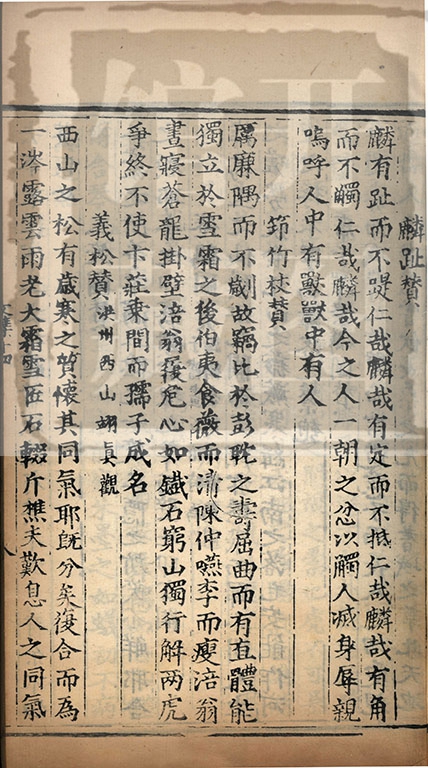 麟趾贊
麟有趾而不踶仁哉麟哉有定而不抵仁哉麟哉有角
而不觸仁哉麟哉今之人一朝之忿以觸人滅身辱親
嗚呼人中有獸獸中有人
筇竹杖贊
厲廉隅而不劌故竊比於彭耽之壽屈曲而有直體能
獨立於雪霜之後伯夷食薇而清陳仲嚥李而瘦涪翁
晝寢蒼龍掛壁涪翁履危心如鐵石窮山獨行解兩虎
爭終不使卞莊乗間而孺子成名
義松贊洪州西山翊真觀
西山之松有歲寒之質懷其同氣耶既分矣復合而為
一涔露雲雨老大霜雪匠石輟斤樵夫歎息人之同氣